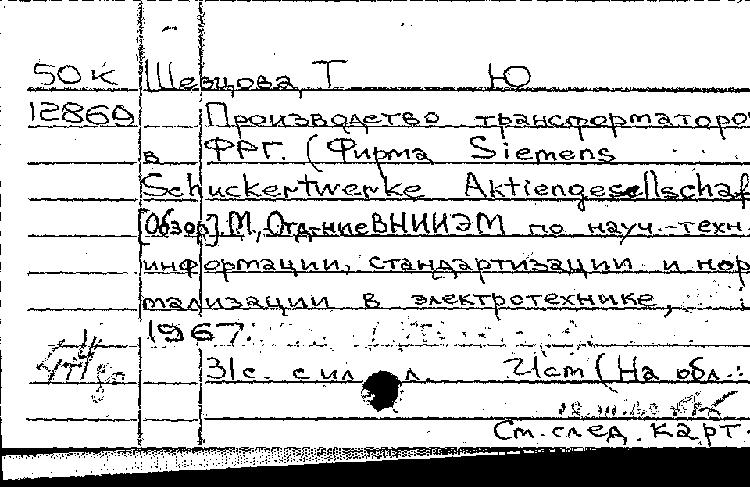 50К Шевцова, Т Ю
12860 Производство трансформаторо
в ФРГ. (Фирма Siemens
Schuckertwerke Aktiengesellschaf
[Обзор]. М., Отд-ние ВНИИЭМ по науч.-техн.
информации, стандартизации и нор
мализации в электротехнике,
1967.
31с. с ил л. 21см (На обл.:
См. след. карт.